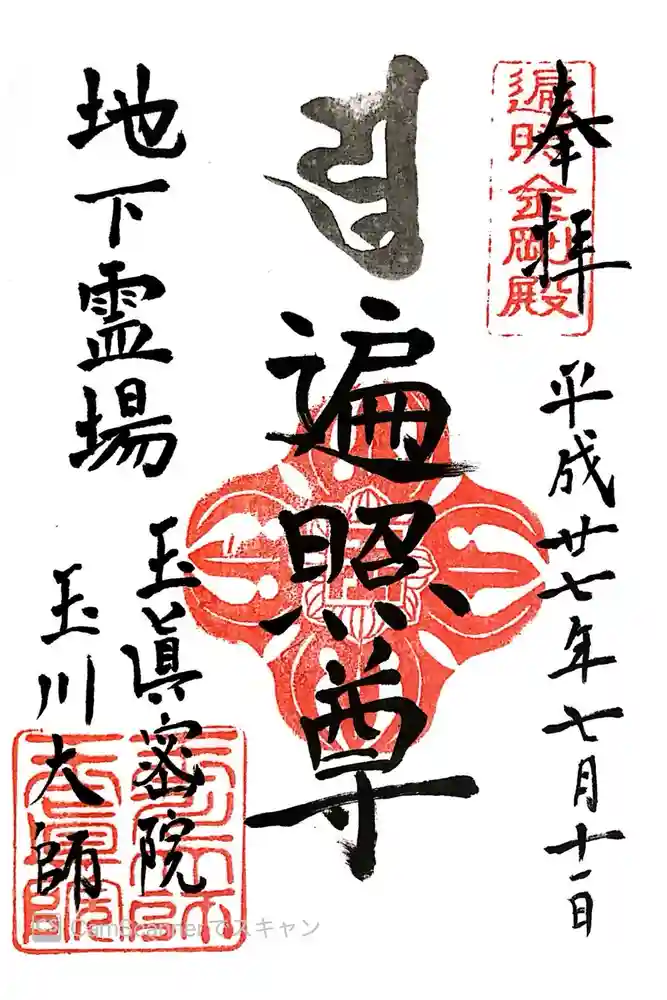 奉拝
遍照金剛殿
平成廿七年七月十一日
遍照尊
地下霊場
玉眞密院
玉川大師
CamScannerでスキャン